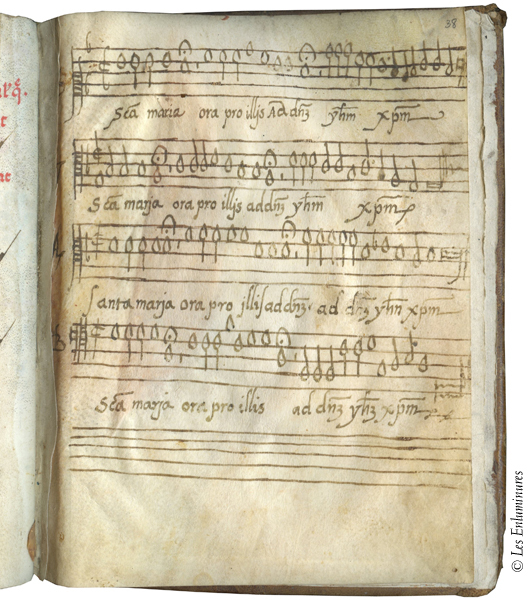 38
Scā maria ora pro illis Ad dnȝ yħm xpm
Scā marja ora pro illis ad dnȝ yħm xpm
Santa marja ora pro illis ad dnȝ ad dnȝ yħn xpm
Scā marja ora pro illis ad dnȝ yħȝ xpm
© Les Enluminures